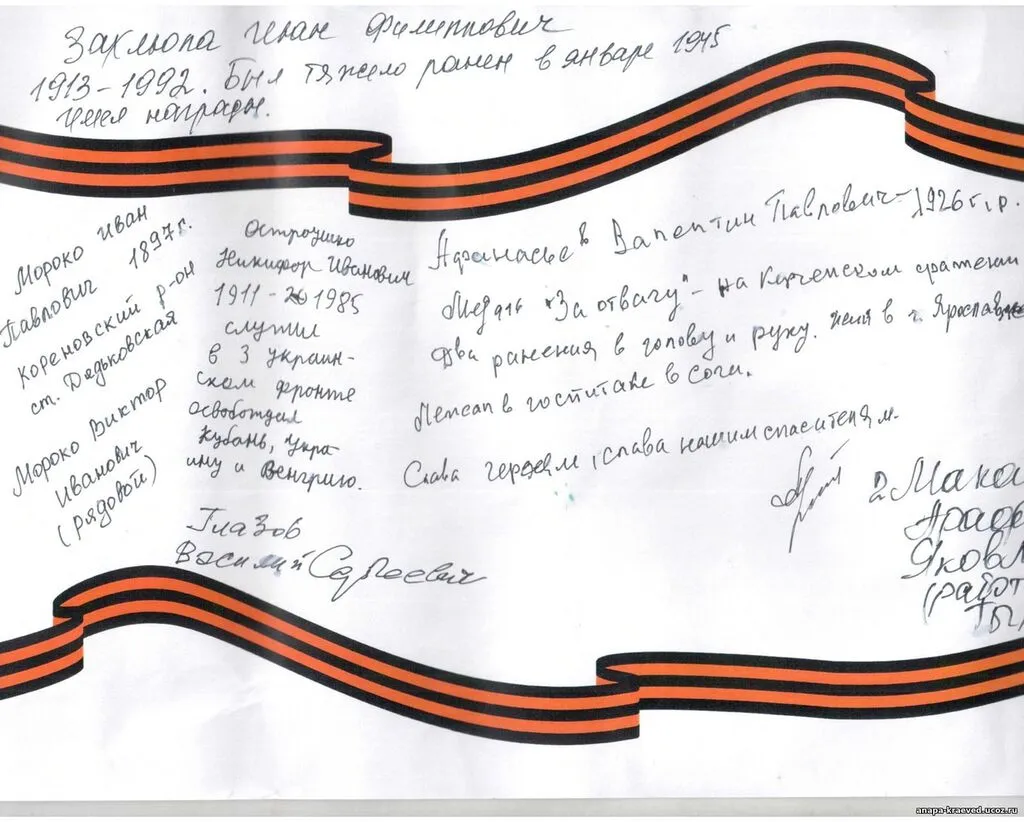 Захлюпа Иван Филиппович
1913-1992. Был тяжело ранен в январе 1945
имел награды.
Мороко Иван
Павлович 1897г.
Кореновский р-он
ст. Дядьковская
Мороко Виктор
Иванович
(рядовой)
Остроушко
Никифор Иванович
1911-1985
служил
в 3 украин-
ском фронте
освобождал
Кубань, Укра-
ину и Венгрию.
Глазов
Василий Сергеевич
Афанасьев Валентин Павлович-1926г.р.
Медаль "За отвагу"- на Керченском сражении
Два ранения в голову и руку. в г. Ярославле
Лежал в госпитале в Сочи.
Слава героям, слава нашим спасителям.
Яковл
(работ
anapa-kraeved.ucoz.ru